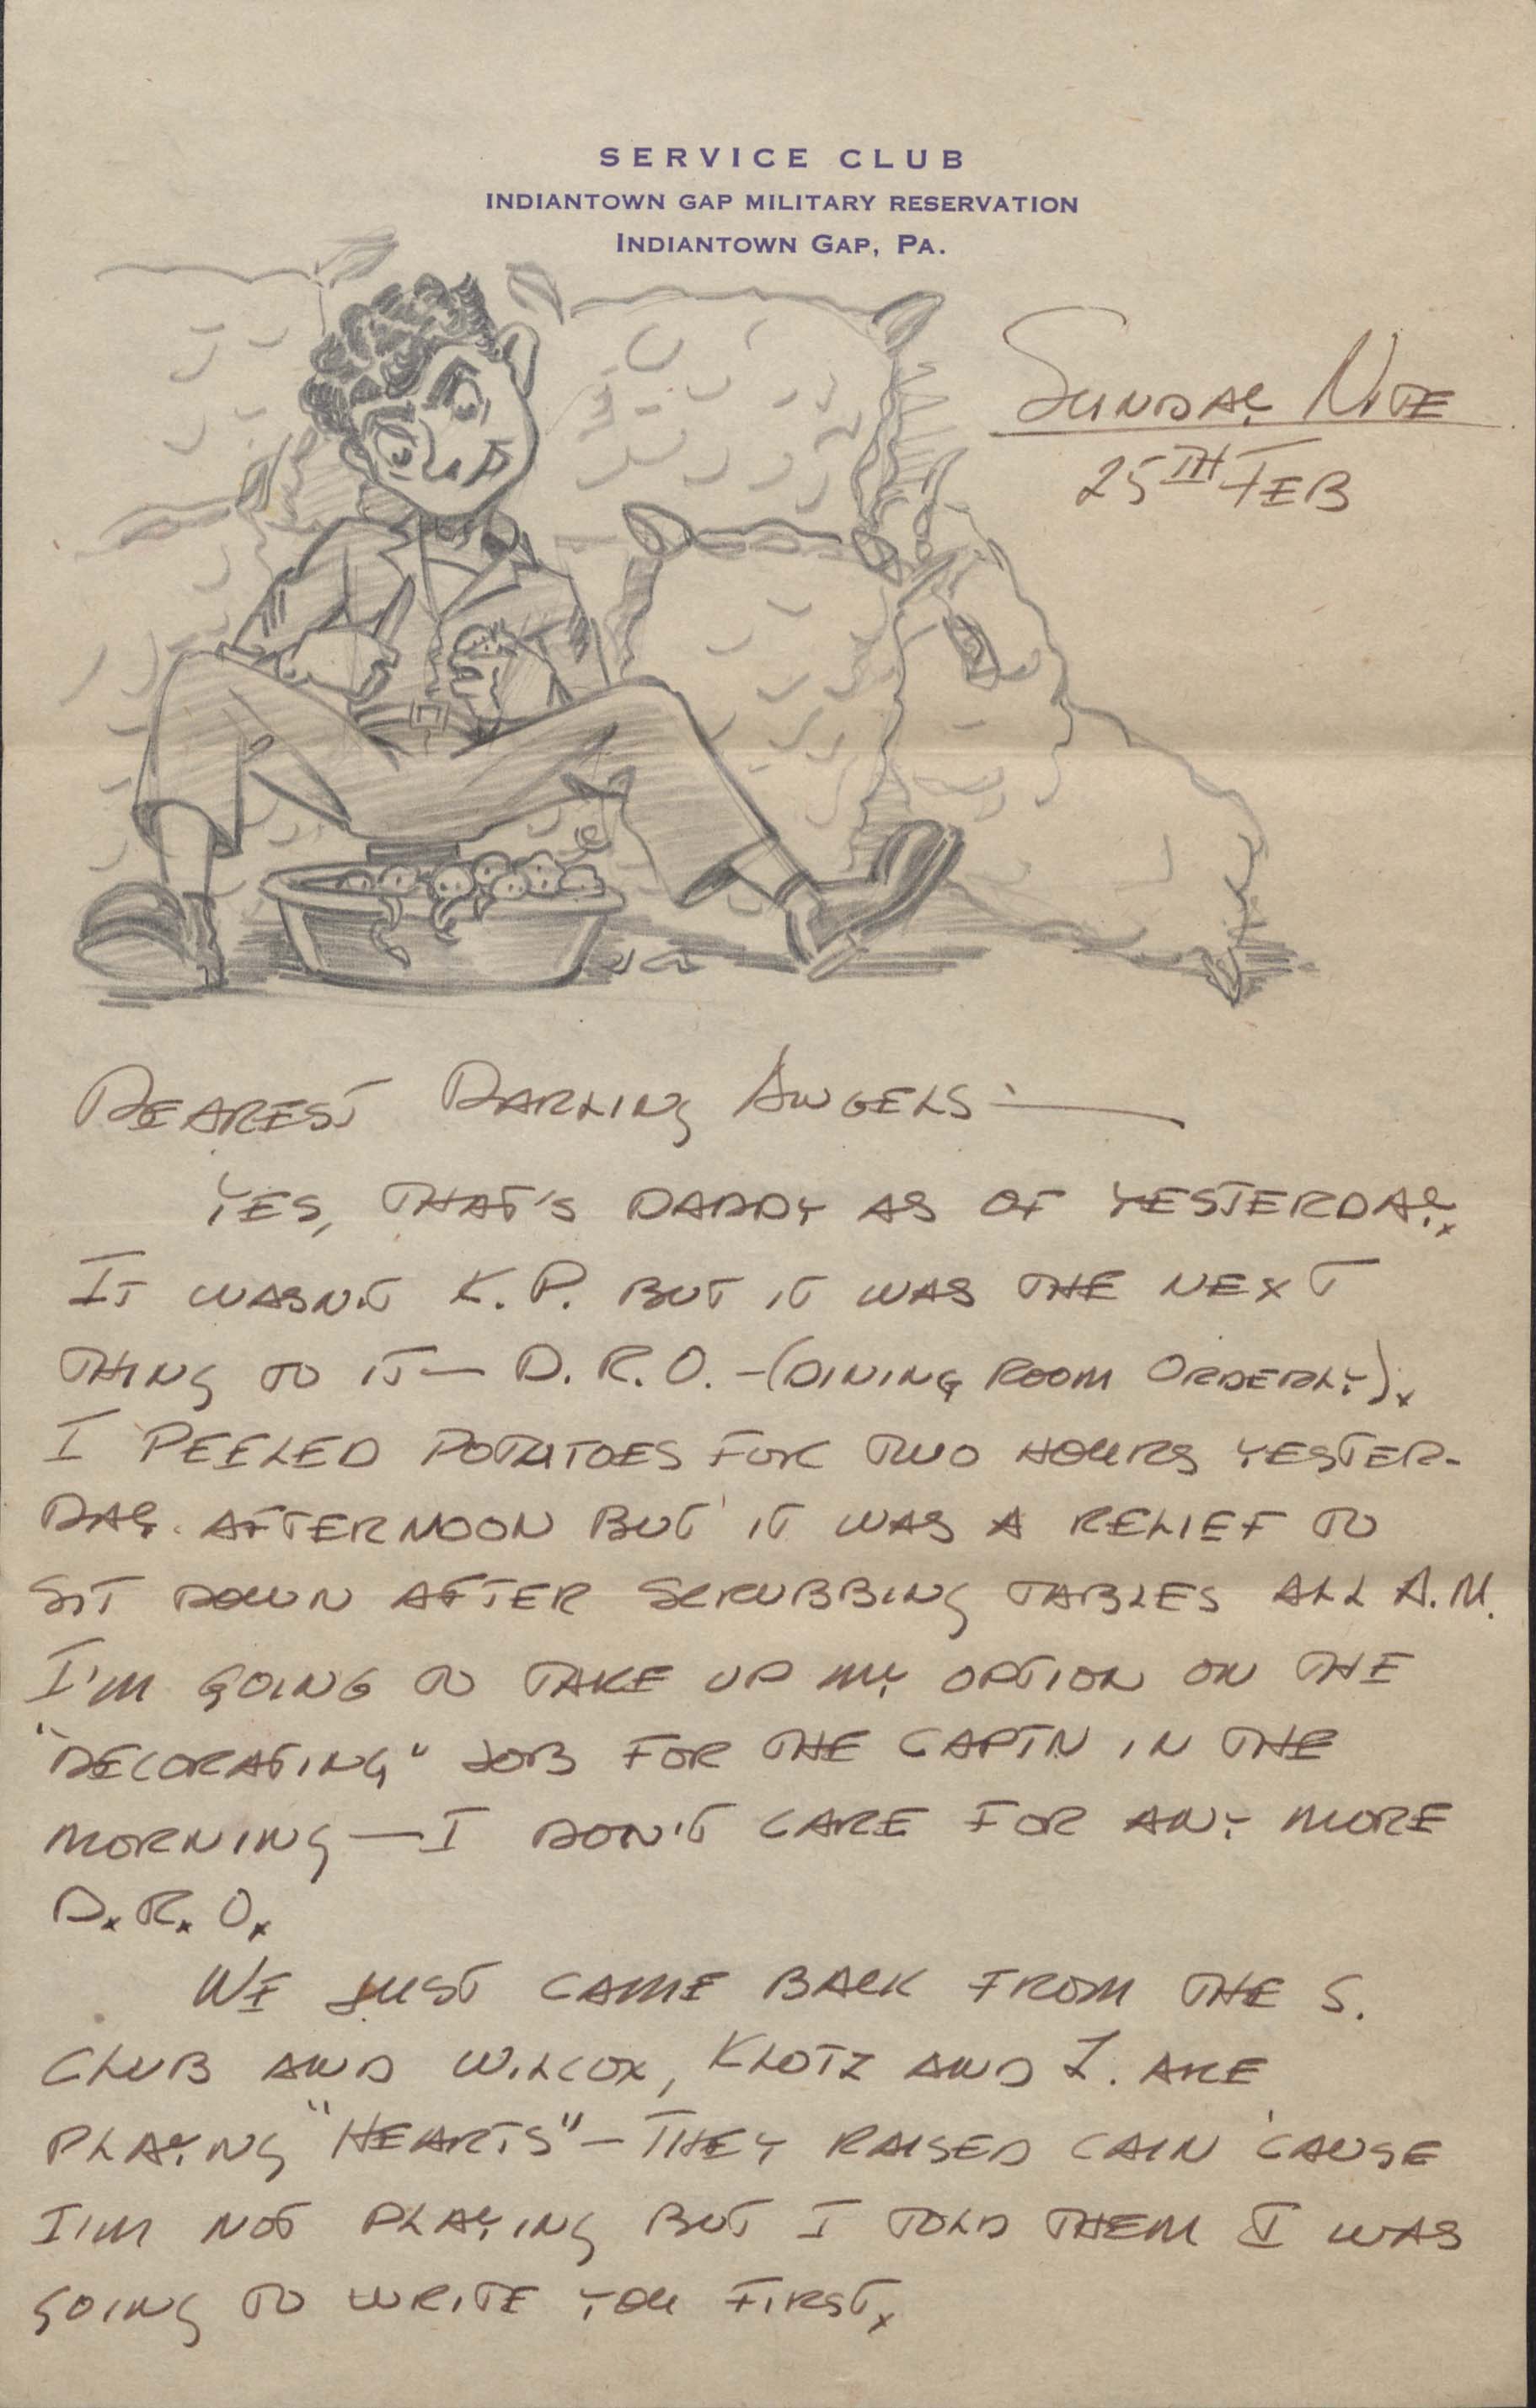 SERVICE CLUB
INDIANTOWN GAP MILITARY RESERVATION
INDIANTOWN GAP, PA.
SUNDAY NITE
25TH FEB
DEAREST DARLING ANGELS—
YES, THAT'S DADDY AS OF YESTERDAY.
IT WASN'T K.P. BUT IT WAS THE NEXT
THING TO IT— D.R.O. -(DINING ROOM ORDERLY).
I PEELED POTATOES FOR TWO HOURS YESTER-
DAY AFTERNOON BUT IT WAS A RELIEF TO
SIT DOWN AFTER SCRUBBING TABLES ALL A.M.
I'M GOING TO TAKE UP MY OPTION ON THE
"DECORATING" JOB FOR THE CAPT'N IN THE
MORNING—I DON'T CARE FOR ANY MORE
D.R.O.
WE JUST CAME BACK FROM THE S.
CLUB AND WILCOX, KLOTZ AND Z. ARE
PLAYING "HEARTS"—THEY RAISED CAIN 'CAUSE
I'M NOT PLAYING BUT I TOLD THEM I WAS
GOING TO WRITE YOU FIRST.